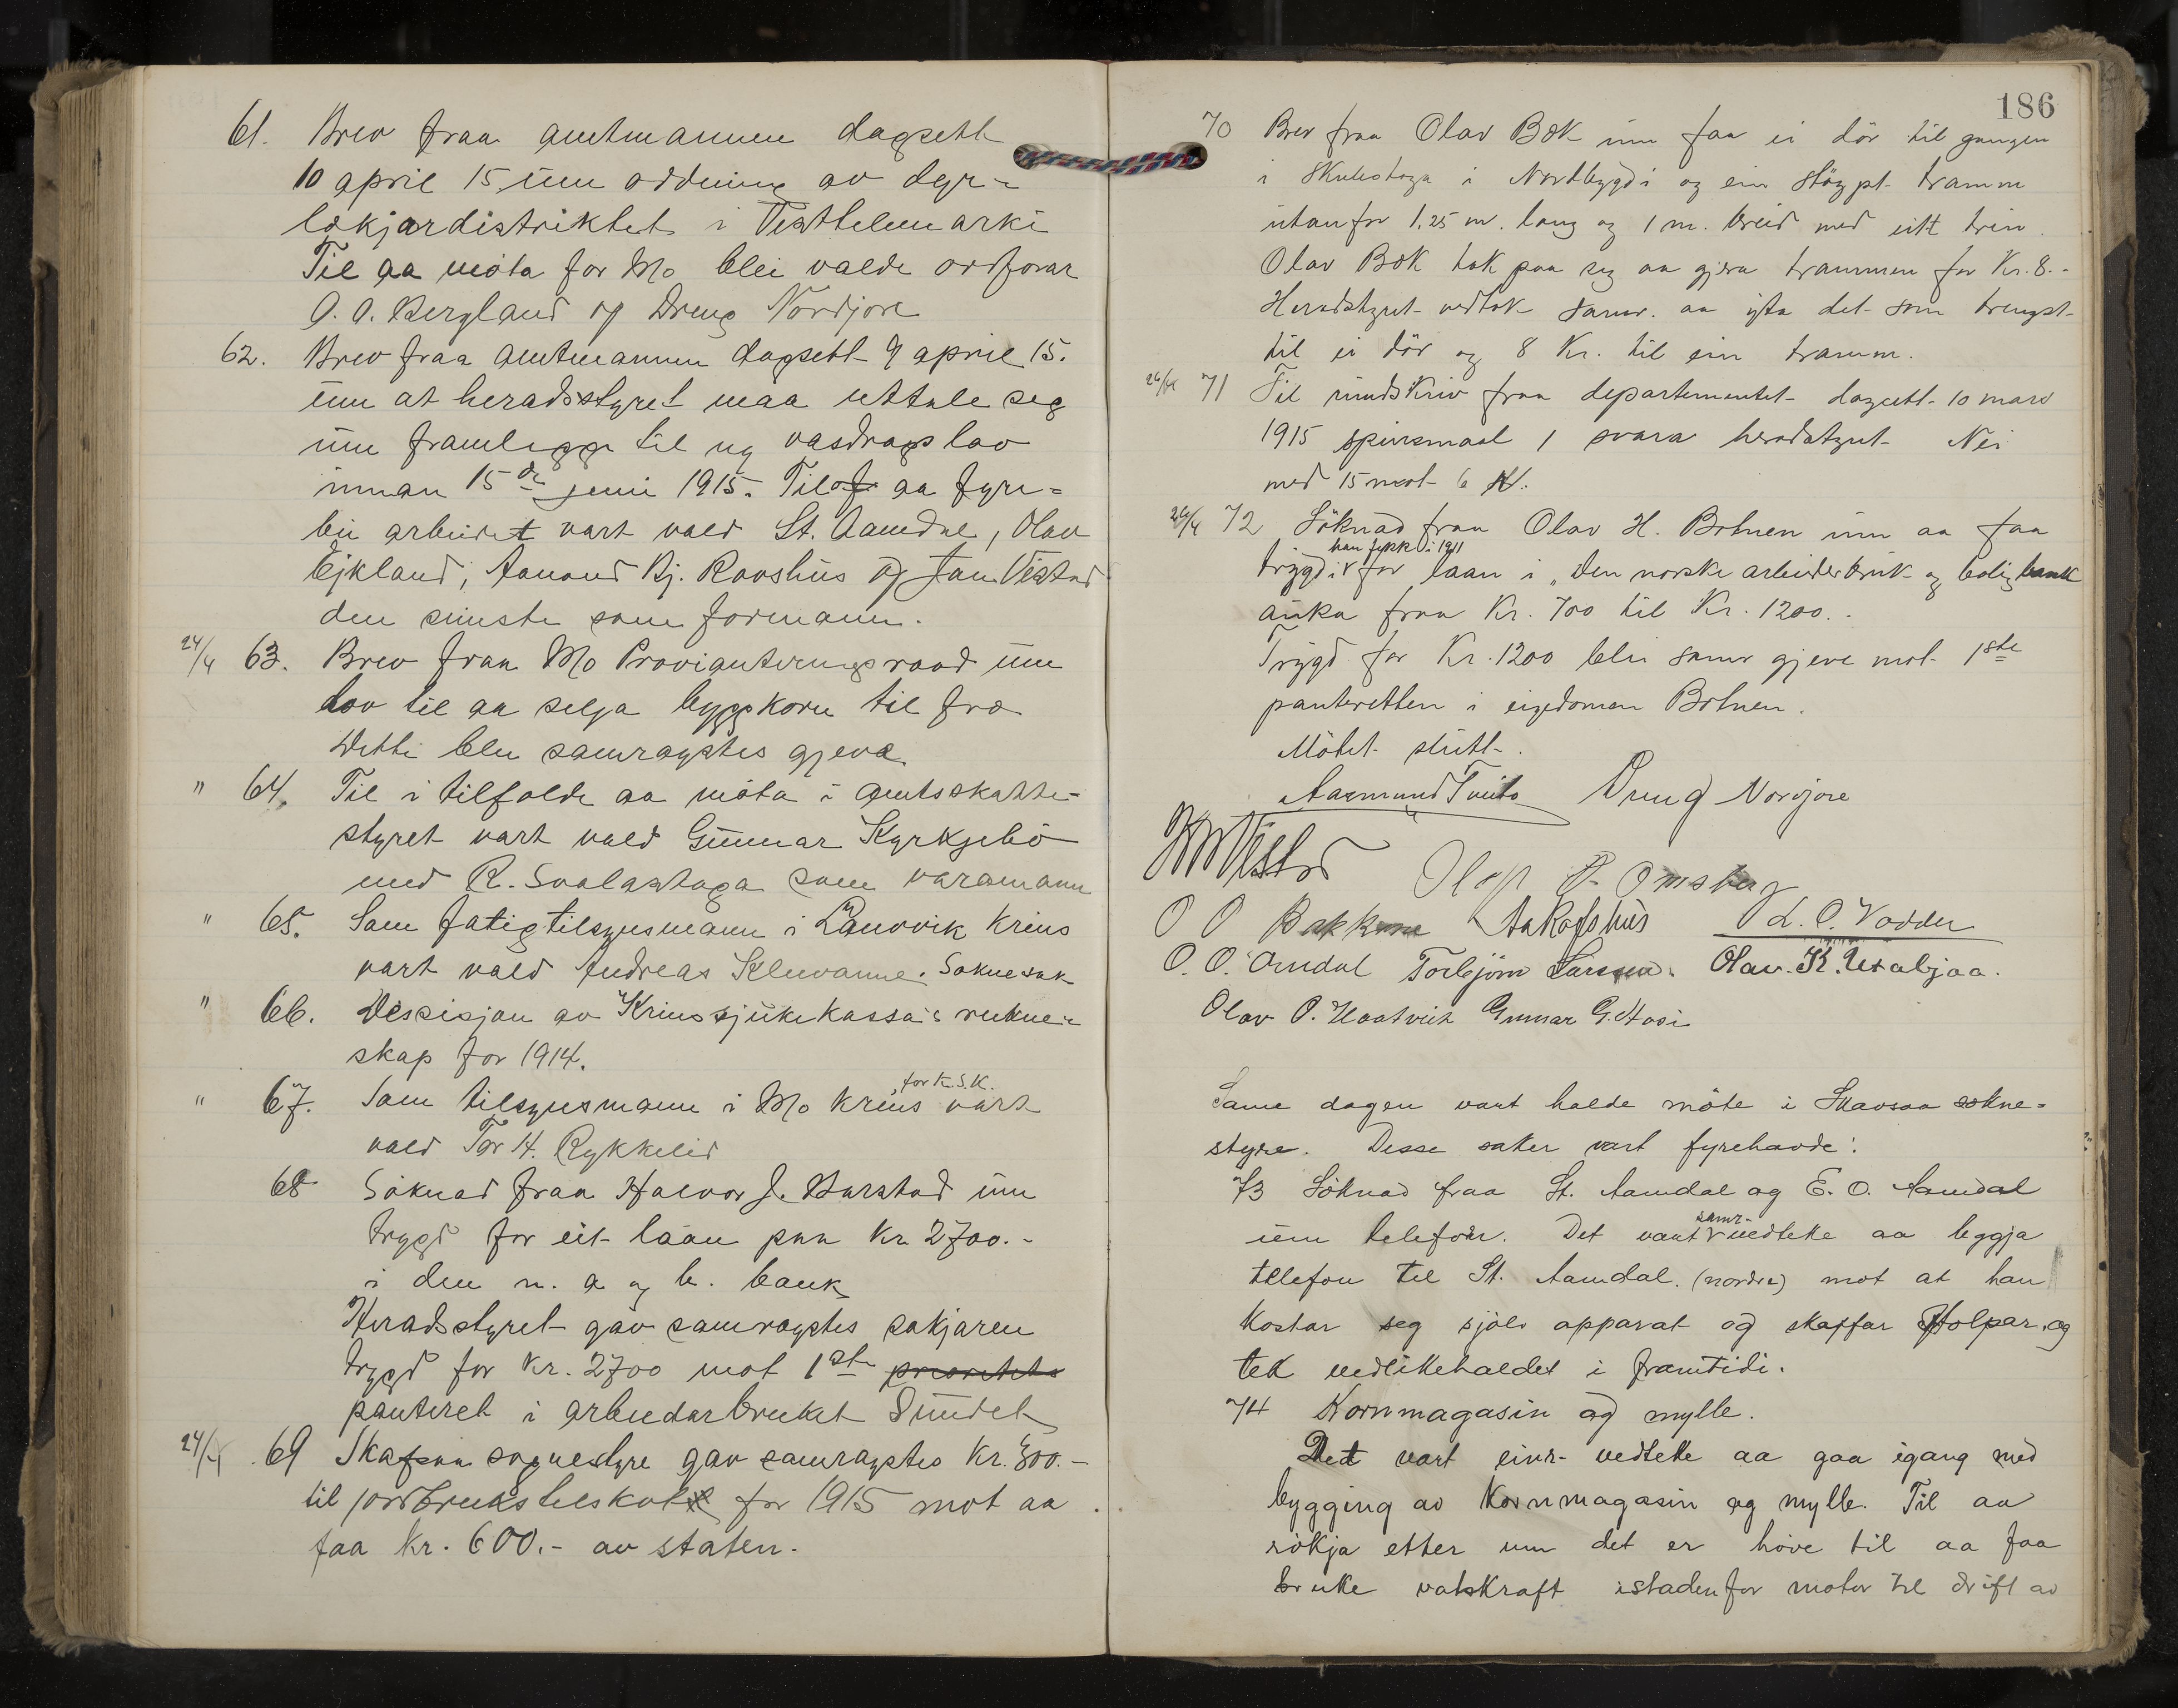 61. Brev fraa amtmannen dagsett
10 april 15 um ordning av dyr=
lækjardistriktet i Vesttelemarki
Til aa möta for Mo blei valde ordförar
O. O. Bergland og Dreng Nordjore
62. Brev fraa amtmannen dagsett 9 april 15.
um at heradsstyret maa uttale seg
um framlegg til ny vasdragslov
innan 15de juni 1915. Til aa fyre=
bu arbeidet vart vald St. Aamdal, Olav
Eikland, Aanund Kj. Ravshus og Jan Vistad
den siste som formann.
24/4 63. Brev fraa Mo Provianteringsraad um
lov til aa selja byggkorn til fræ
Dette blei samrøystes gjeva.
" 64. Til i tilfelde aa möta i amtsskatte=
styret vart vald Gunnar Kyrkjebö
med R. Svalastoga som varamann
" 65. Som fatigtilsynsmann i krins
vart vald Andreas Klevanne. Soknesak
" 66. Desisjon av Krinssjukekassa's rekne=
skap for 1914.
" 67. Som tilsynsmann i Mo krins for K.S.K. vart
vald Tor H. Rykkelid
68 Söknad fraa Halvor J. Harstad um
trygd for eit laan paa Kr 2700.-
i den n. a og b. bank
Heradsstyret gav samrøystes søkjaren
trygd for Kr. 2700 mot 1ste prioritets
panteret i arbeidarbruket Sundet
24/4 69 Skafsaa sognestyre gav samrøystes Kr. 300.-
til jordbruksleskule for 1915 mot aa
faa Kr. 600.- av staten.
186
70 Brev fraa Olav Bök um faa ei dör til gangen
i Skulestoga i Nordbygdi og ein stöypt tramm
utanfor 1,25 m. lang og 1 m. breid med eitt trin.
Olav Bök tok paa seg aa gjera trammen for Kr. 8.-
Heradstyret vedtok samr. aa yta det som trengst
til ei dör og 8 Kr. til ein tramm.
24/4 71 Til rundskriv fraa departementet dagsett 10 mars
1915 spursmaal 1 svara heradstyret Nei
med 15 mot 6
24/4 72 Söknad fraa Olav H. Botnen um aa faa
trygdi han fekk i 1911 for laan i "Den norske arbeiderbruk- og boligbank
auka fraa Kr. 700 til Kr. 1200.-
Trygd for Kr. 1200 blei samr gjeve mot 1ste
panteretten i eigedomen Botnen.
Mötet slutt.
Aasmund Tveito Dreng Nordjore
Olaf Omsberg
O O Bakkene AaRafshus L. O. Vadder
O. O. Omdal Torbjörn Larssen. Olav. K. Uxaljaa.
Olav O. Haatveit Gunnar G. Hosi
Same dagen vart halde möte i Skavsaa sokne=
styre. Desse saker vart fyrehavde:
73 Söknad fraa St. Aamdal og E. O. Aamdal
um telefon. Det vart samr- vedteke aa leggja
telefon til St. Aamdal. (nordre) mot at han
kostar seg sjölv apparat og skaffar stolpar og
tek vedlikehaldet i framtidi.
74 Kornmagasin og mylle.
Det vart einr- vedteke aa gaa igang med
bygging av kornmagasin og mylle. Til aa
sökja etter um det er höve til aa faa
bruke vatskraft istadenfor motor til drift av